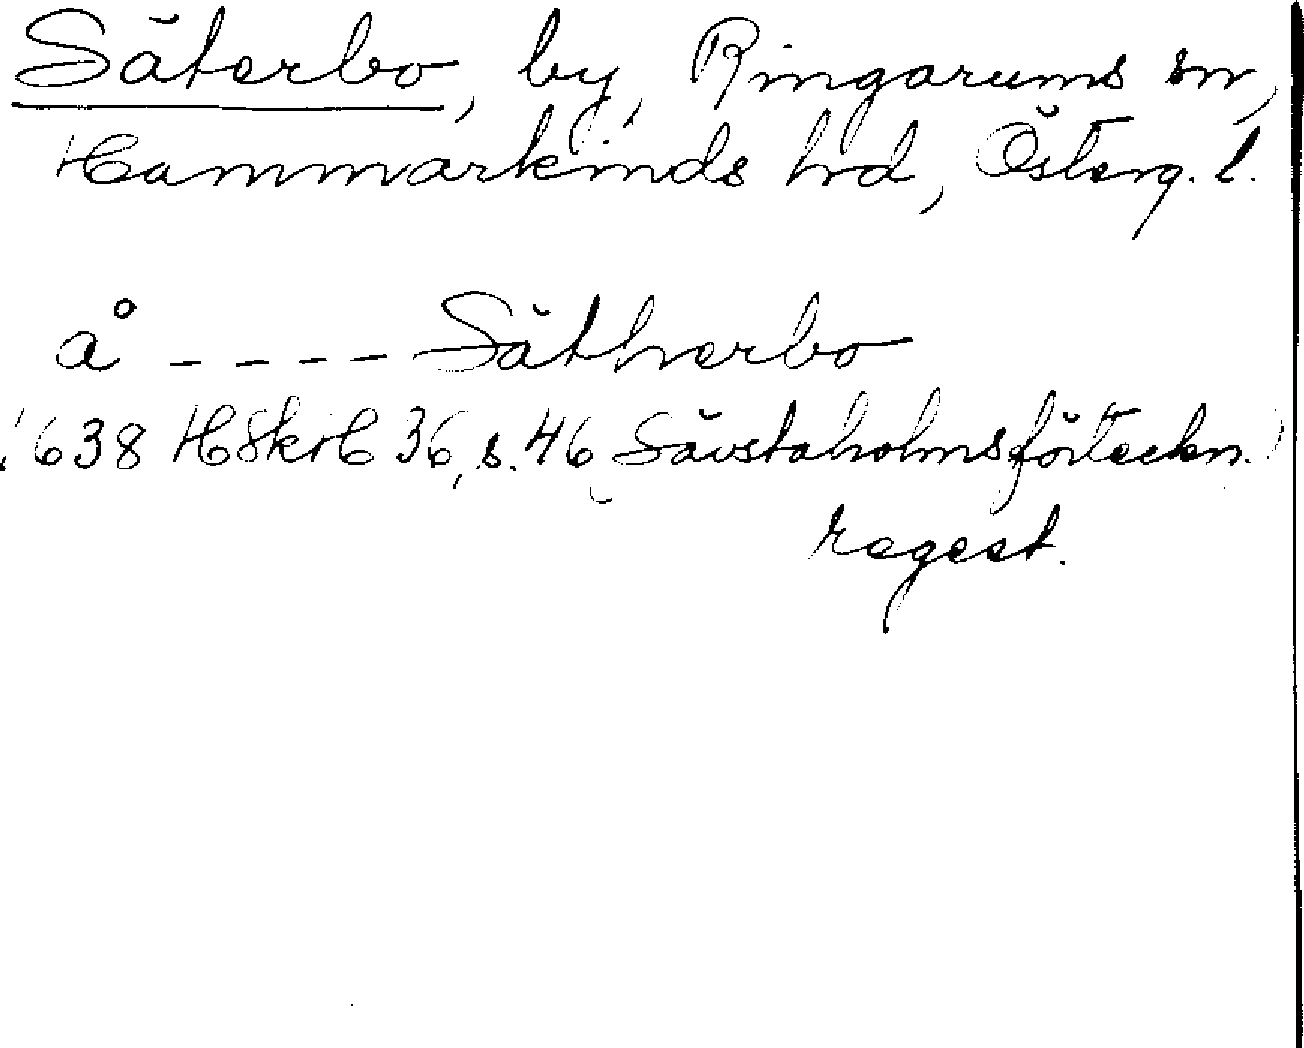 Säterbo, by, Ringarums sn,
Hammarkinds hrd, Österg. l.
å ---- Sätherbo
1638 HSkrH 36, s. 46 Sävstaholmsförteckn.
regest.